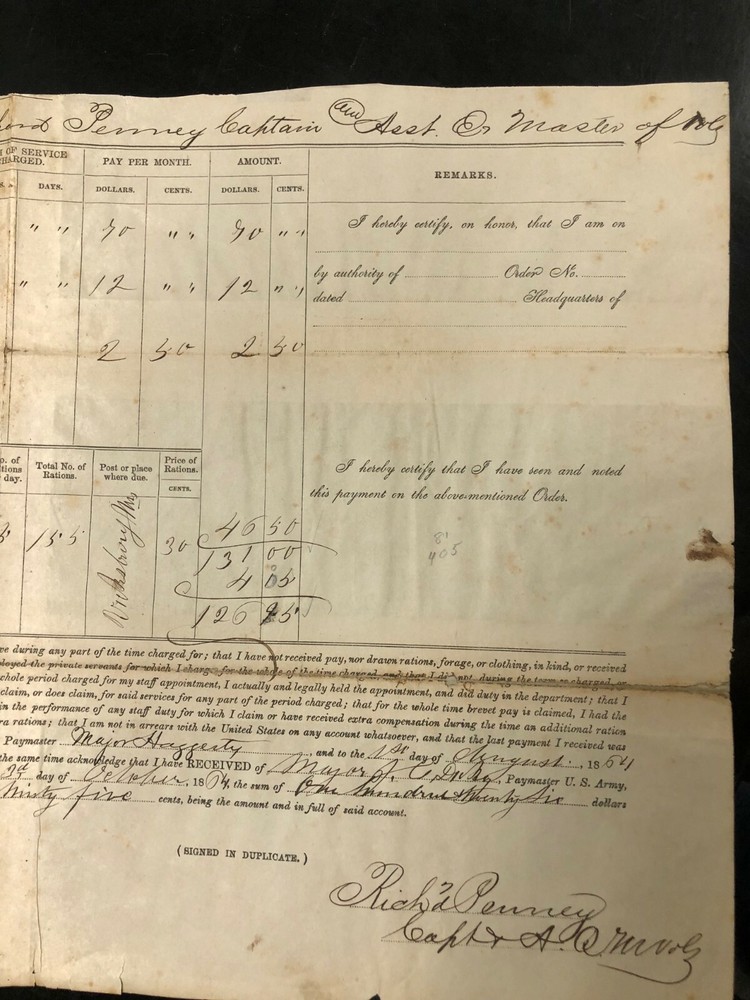 Penney Captain and Asst. Qr Master of Vols
OF SERVICE
HARGED.
PAY PER MONTH.
AMOUNT.
REMARKS.
DAYS.
DOLLARS.
CENTS.
DOLLARS.
CENTS.
" " 70 " " 70 " "
I hereby certify, on honor, that I am on
by authority of Order No.
" " 12 " " 12 " "
dated Headquarters of
2 50 2 50
o. of
tions
day.
Total No. of
Rations.
Post or place
where due.
Price of
Rations.
CENTS.
I hereby certify that I have seen and noted
this payment on the above-mentioned Order.
5 155 Vicksburg Miss 30 46 50
131 00
4 05
126 95
8'
405
ve during any part of the time charged for; that I have not received pay, nor drawn rations, forage, or clothing, in kind, or received
ployed the private servants for which I charge for the whole of the time charged, and that I did not, during the term so charged, or
whole period charged for my staff appointment, I actually and legally held the appointment, and did duty in the department; that I
claim, or does claim, for said services for any part of the period charged; that for the whole time brevet pay is claimed, I had the
in the performance of any staff duty for which I claim or have received extra compensation during the time an additional ration
ra rations; that I am not in arrears with the United States on any account whatsoever, and that the last payment I received was
Paymaster Major Haggerty, and to the 1st day of August, 1864
the same time acknowledge that I have RECEIVED of Major J. Paymaster U. S. Army,
day of October, 1864, the sum of One hundred & twenty six dollars
Ninty five cents, being the amount and in full of said account.
(SIGNED IN DUPLICATE.)
Rich'd Penney
Capt & A. Q M Vols